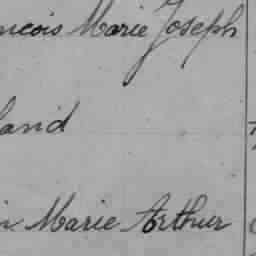 ncois Marie Joseph
land
n Marie Arthur